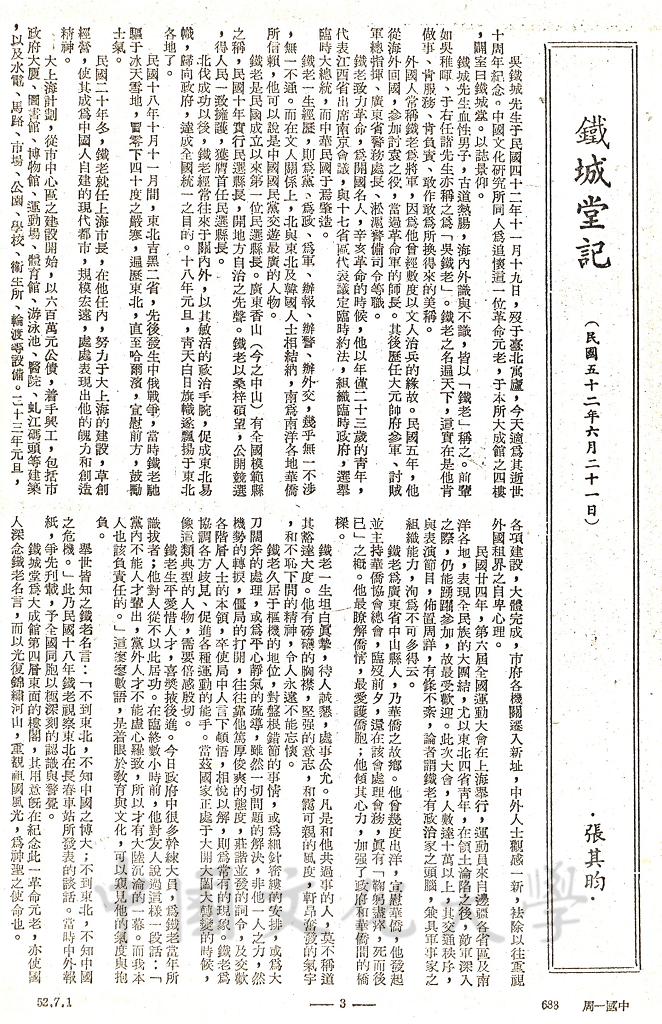 鐵城堂記
（民國五十二年六月二十一日）
・張其昀・
吳鐵城先生于民國四十二年十一月十九日，歿于臺北寓廬，今天適爲其逝世
十周年紀念。中國文化研究所同人爲追懷這一位革命元老，于本所大成館之四樓
，闢室曰鐵城堂。以誌景仰。
鐵城先生血性男子，古道熱腸，海內外識與不識，皆以「鐵老」稱之。前輩
如吳稚暉、于右任諸先生亦稱之爲「吳鐵老」。鐵老之名遍天下，這實在是他肯
做事、肯服務、肯負責、敢作敢爲所換得來的美稱。
外國人常稱鐵老爲將軍，因爲他曾經數度以文人治兵的緣故。民國五年，他
從海外回國，參加討袁之役，當過革命軍的師長。其後歷任大元帥府參軍、討賊
軍總指揮、廣東省警務處長、淞滬警備司令等職。
鐵老致力革命，爲開國名人，辛亥革命的時候，他以年僅二十三歲的青年，
代表江西省出席南京會議，與十七省區代表議定臨時約法，組織臨時政府，選舉
臨時大總統，而中華民國于焉肇造。
鐵老一生經歷，則爲黨、爲政、爲軍、辦報、辦警、辦外交，幾乎無一不涉
，無一不通。而在文人關係上，北與東北及韓國人士相結納，南爲南洋各地華僑
所信賴，他可以說是中國國民黨交遊最廣的人物。
鐵老是民國成立以來第一位民選縣長。廣東香山（今之中山）有全國模範縣
之稱，民國十年實行民選縣長，開地方自治之先聲。鐵老以桑梓碩望，公開競選
，得人民一致擁護，獲膺首任民選縣長。
北伐成功以後，鐵老經常往來于關內外，以其敏活的政治手腕，促成東北易
幟，歸向政府，達成全國統一之目的。十八年元旦，青天白日旗幟遂飄揚于東北
各地了。
民國十八年十月十一月間，東北吉黑二省，先後發生中俄戰爭，當時鐵老馳
驅于冰天雪地，冒零下四十度之嚴寒，遍歷東北，直至哈爾濱，宣慰前方，鼓勵
士氣。
民國二十年冬，鐵老就任上海市長，在他任內，努力于大上海的建設，草創
經營，使其成爲中國人自建的現代都市，規模宏遠，處處表現出他的魄力和創造
精神。
大上海計劃，從市中心區之建設開始，以六百萬元公債，着手興工，包括市
政府大廈、圖書館、博物館、運動場、體育館、游泳池、醫院、虬江碼頭等建築
，以及水電、馬路、市場、公園、學校、衞生所、輪渡等設備。二十三年元旦，
各項建設，大體完成，市府各機關遷入新址，中外人士觀感一新，袪除以往重視
外國租界之自卑心理。
民國廿四年，第六屆全國運動大會在上海舉行，運動員來自邊疆各省區及南
洋各地，表現全民族的大團結，尤以東北四省青年，在領土淪陷之後，敵軍深入
之際，仍能踴躍參加，故最受歡迎。此次大會，人數達十萬以上，其交通秩序，
與表演節目，佈置周詳，有條不紊，論者謂鐵老有政治家之頭腦，兼具軍事家之
組織能力，洵爲不可多得云。
鐵老爲廣東省中山縣人，乃華僑之故鄉。他曾幾度出洋，宣慰華僑，他發起
並主持華僑協會總會，臨歿前夕，還在該會處理會務，眞有「鞠躬盡瘁，死而後
已」之概。他最瞭解僑情，最愛護僑胞；他傾其心力，加强了政府和華僑間的橋
樑。
鐵老一生坦白眞摯，待人誠懇，處事公允。凡是和他共過事的人，莫不稱道
其豁達大度。他有磅礴的胸襟，堅强的意志，和靄可親的風度，軒昂奮發的氣宇
，和不恥下問的精神，令人永遠不能忘懷。
鐵老久居于樞機的地位，對盤根錯節的事情，或爲細針密縷的安排，或爲大
刀闊斧的處理，或爲平心靜氣的疏導，雖然一切問題的解決，非他一人之力，然
機勢的轉捩，僵局的打開，往往靠他篤厚俊爽的態度，莊諧並發的詞令，及交歡
各階層人士的本領，卒使局中人言下頓悟，相悅以解，則爲常有的現象。鐵老爲
協調各方歧見、促進各種運動的能手。當茲國家正處于大開大闔大轉變的時候，
像這類典型的人物，需要倍感殷切。
鐵老生平愛惜人才，喜奬掖後進。今日政府中很多幹練大員，爲鐵老當年所
識拔者；他對人從不以此居功。在臨終數小時前，他對友人說過這樣一段話：「
黨內不能人才輩出，黨外人才不能虛心羅致，所以才有大陸沉淪的一幕。而我本
人也該負責任的。」這寥寥數語，是着眼於教育與文化，可以窺見他的氣度與抱
負。
舉世皆知之鐵老名言：「不到東北，不知中國之博大；不到東北，不知中國
之危機。」此乃民國十八年鐵老視察東北在長春車站所發表的談話。當時中外報
紙，爭先刊載，予全國同胞以極深刻的認識與警覺。
鐵城堂爲大成館第四層東面的樓閣，其用意旣在紀念此一革命元老，亦使國
人深念鐵老名言，而以光復錦繡河山，重觀祖國風光，爲神聖之使命也。
52.7.1
— 3 —
688 周一國中
中國文化大學